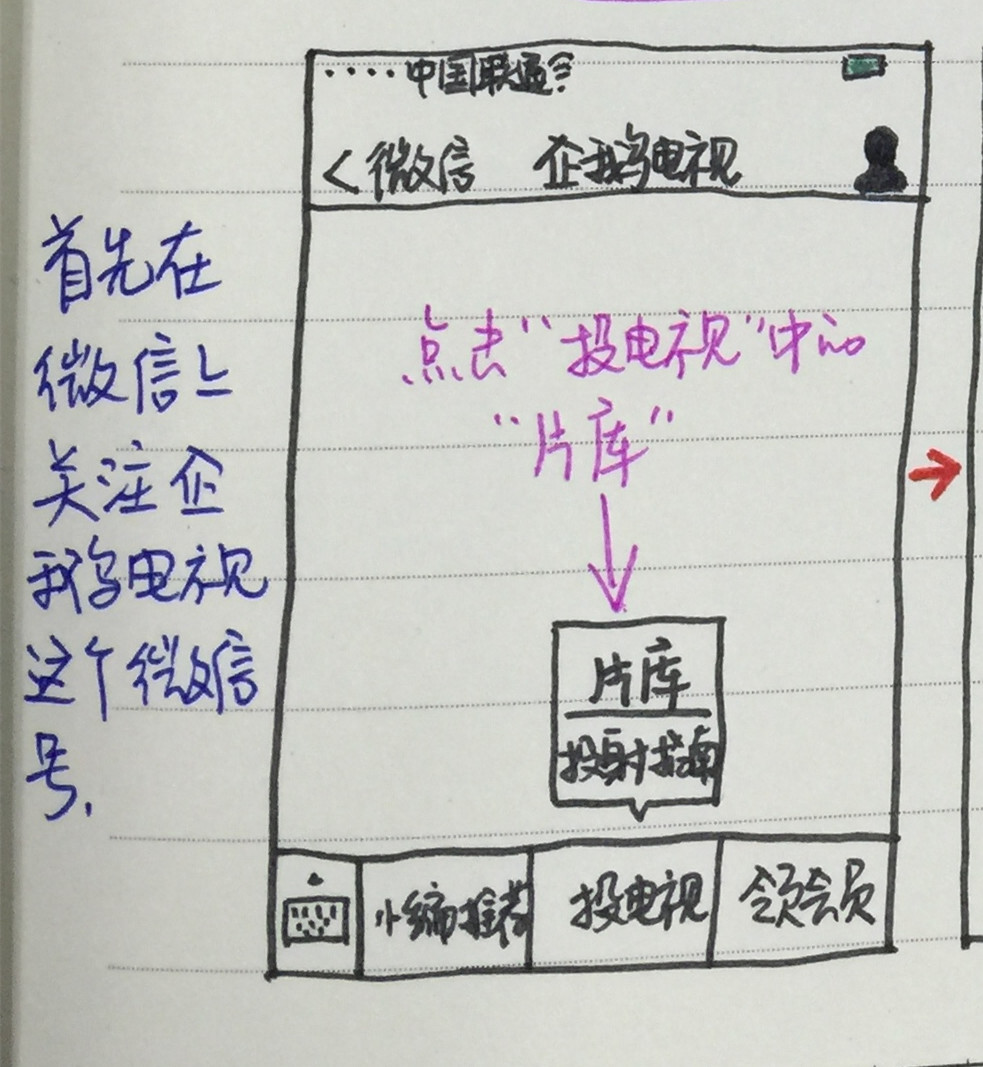 首先在
微信上
关注企
鹅电视
这个微信
号.
....中国联通
<微信 企鹅电视
点击"投电视"中的
"片库"
片库
投射指南
小编推荐 投电视 领会员